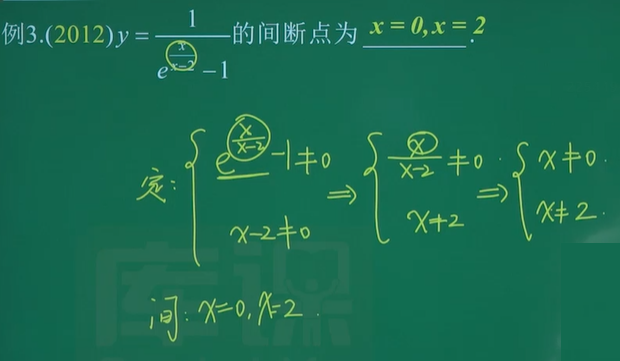 例3.(2012) y = 1/(e^(x/(x-2)) - 1) 的间断点为 x = 0, x = 2.
定: { e^(x/(x-2)) - 1 ≠ 0 ⇒ { x/(x-2) ≠ 0 ⇒ { x ≠ 0
x-2 ≠ 0 x ≠ 2 x ≠ 2
间: x=0, x=2
库课